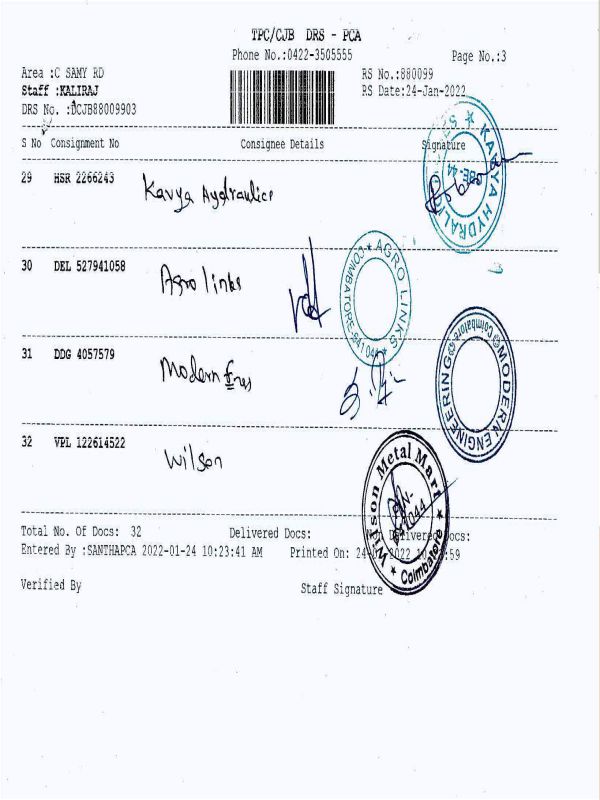 TPC/CJB DRS - PCA
Phone No.:0422-3505555
Page No.:3
Area :C SAMY RD
RS No.:880099
Staff :KALIRAJ
RS Date:24-Jan-2022
DRS No. :DCJB88009903
S No Consignment No Consignee Details Signature
29 HSR 2266243 Kavya Aydraulics
KAVYA HYDRALICS
30 DEL 527941058 Agro links
AGRO LINKS
COIMBATORE-641044
31 DDG 4057579 Modern Engs
MODERN ENGINEERING
Coimbatore
32 VPL 122614522 Wilson
Wilson Metal Mart
Coimbatore
Total No. Of Docs: 32 Delivered Docs: Delivered Docs:
Entered By :SANTHAPCA 2022-01-24 10:23:41 AM Printed On: 24 2022 10 :59
Verified By Staff Signature